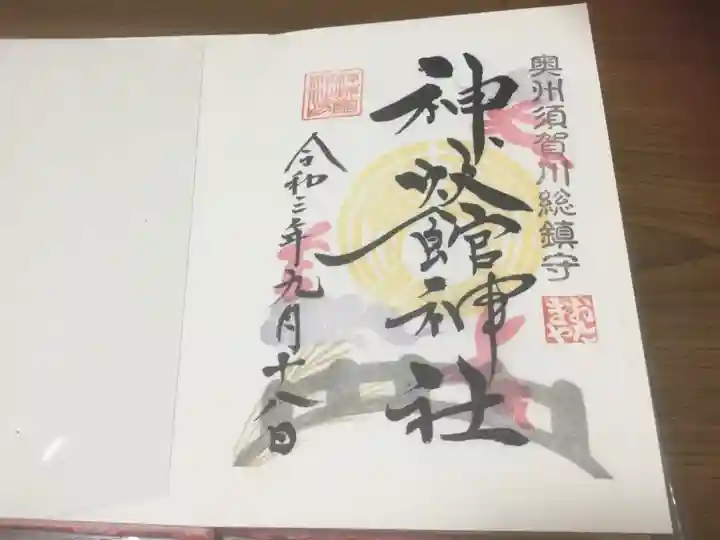 奥州須賀川総鎮守
神炊館神社
令和三年九月十八日
おたきや